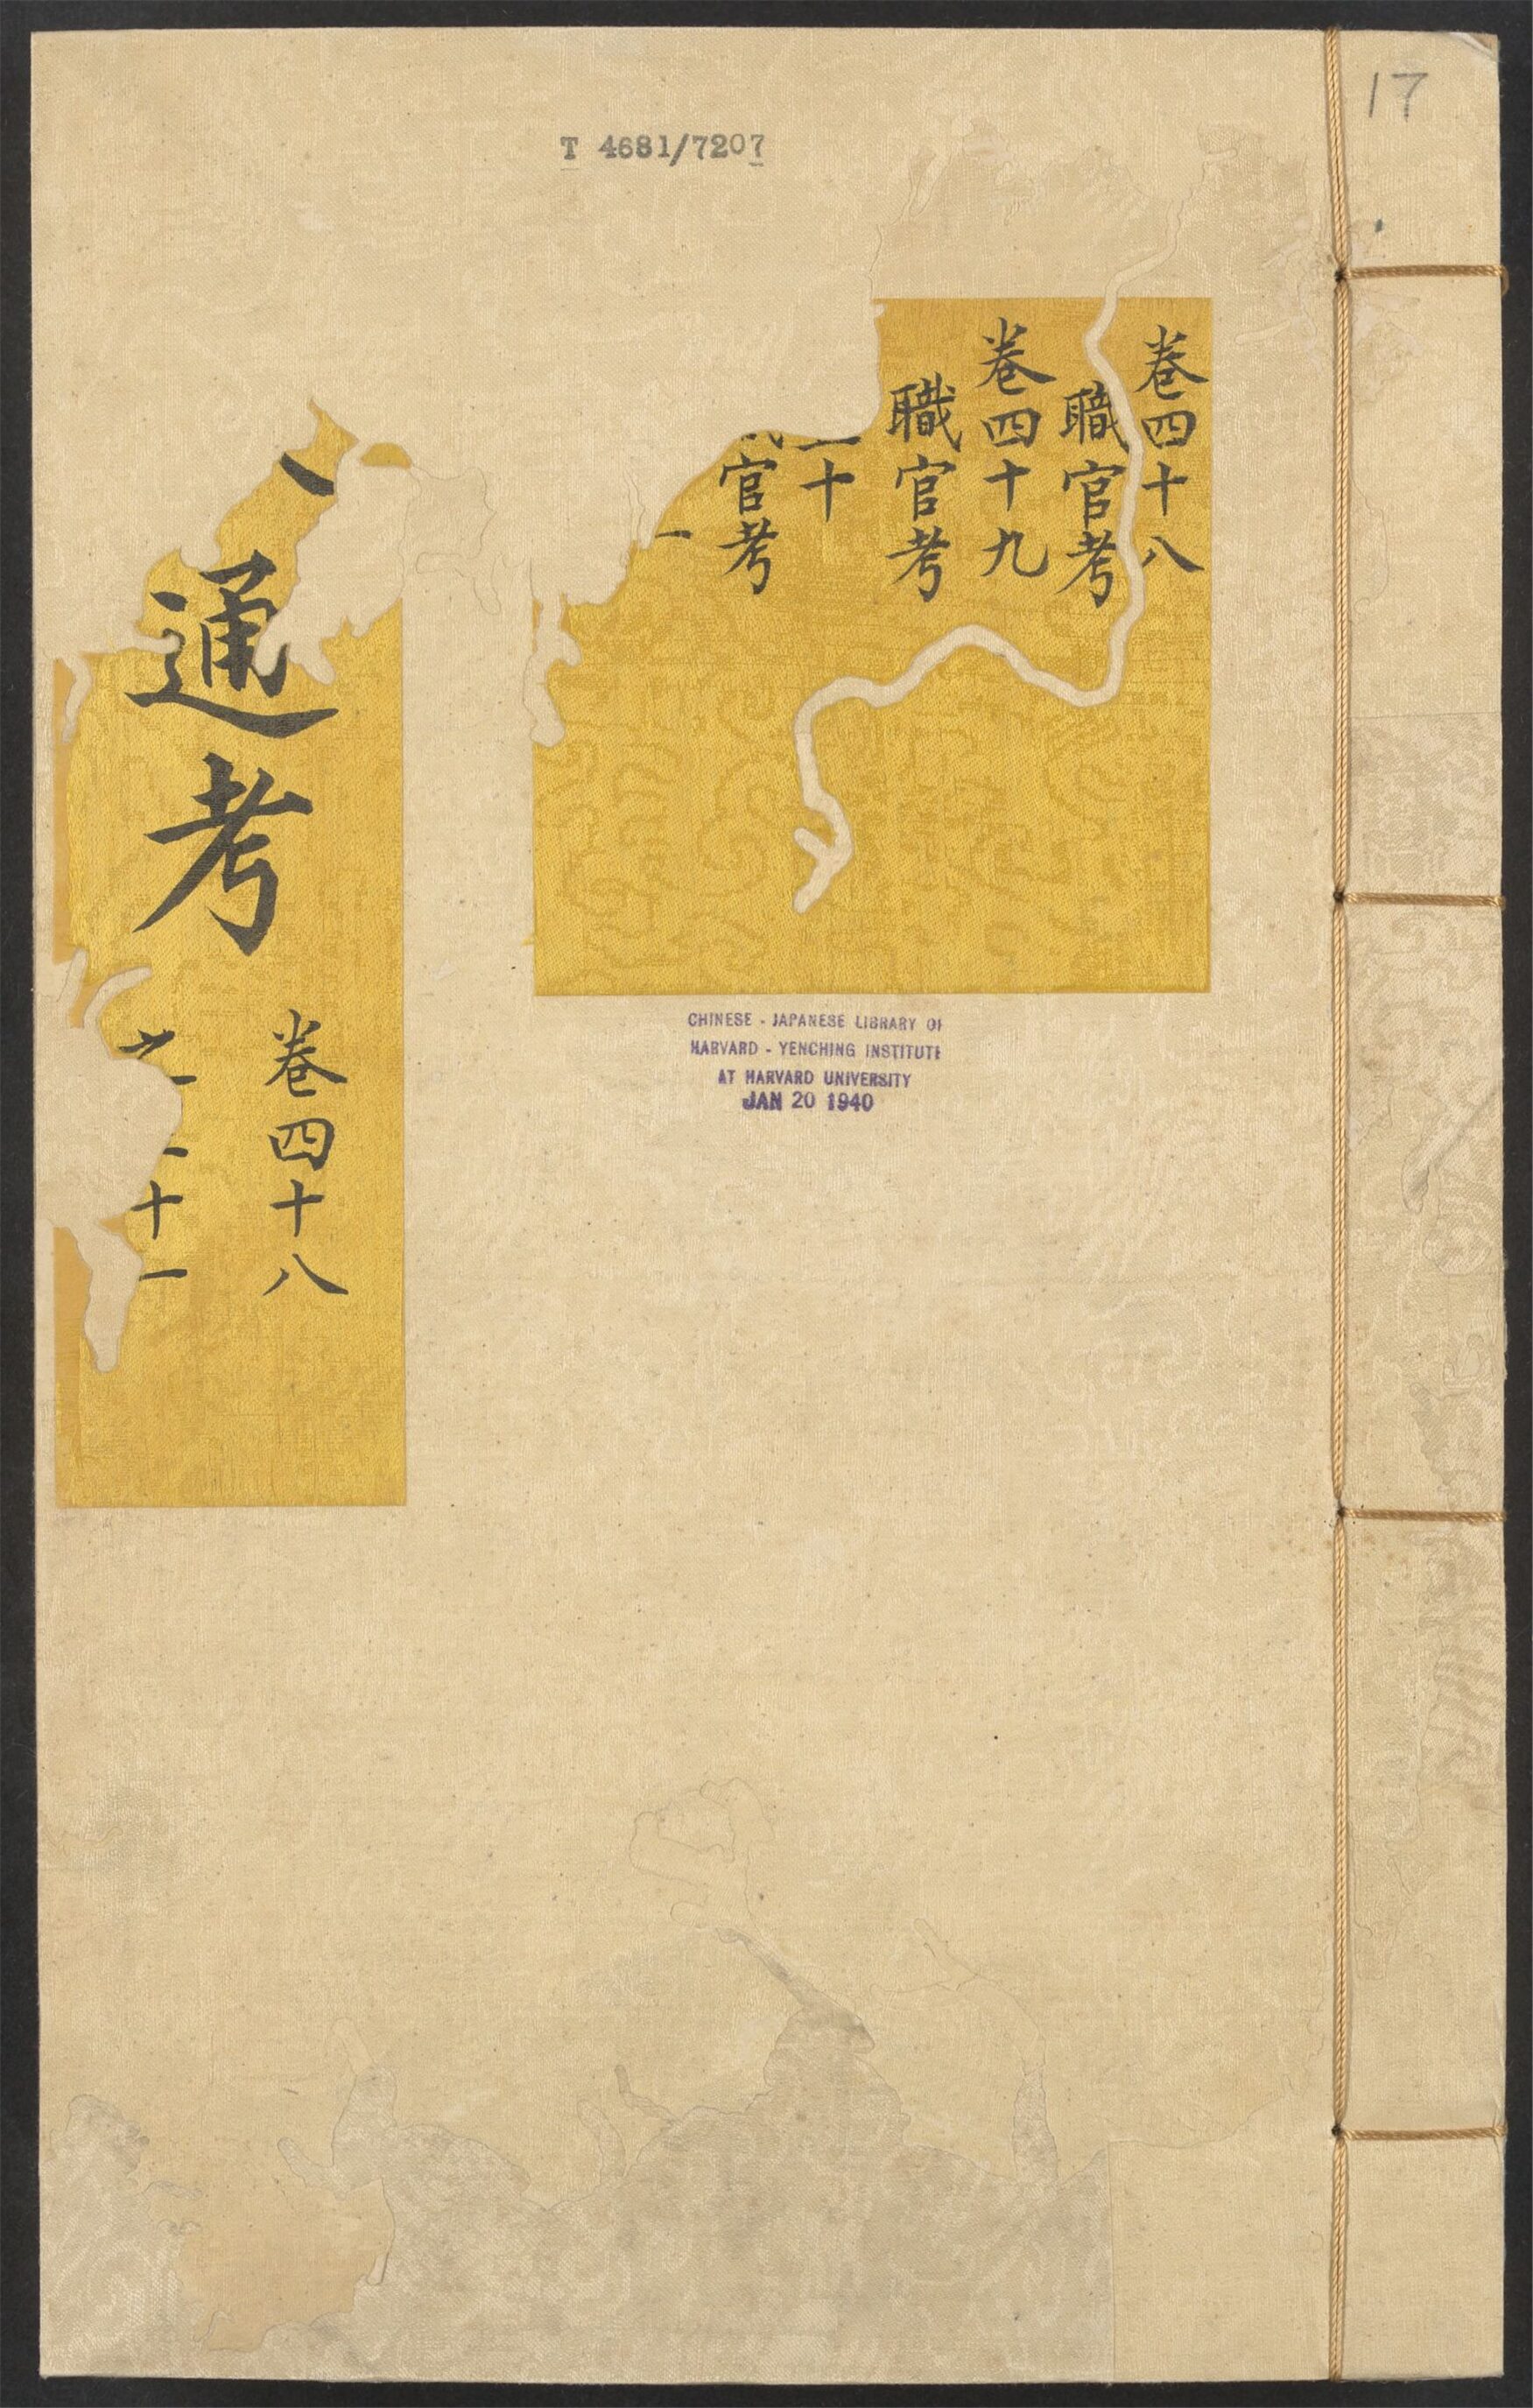 17
T 4681/7207
卷四十八
職官考
卷四十九
職官考
十
官考
一
通考
卷四十八
十一
CHINESE - JAPANESE LIBRARY OF
HARVARD - YENCHING INSTITUTE
AT HARVARD UNIVERSITY
JAN 20 1940